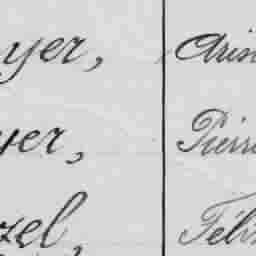 yer, Aris
yer, Pierr
zel, Féli